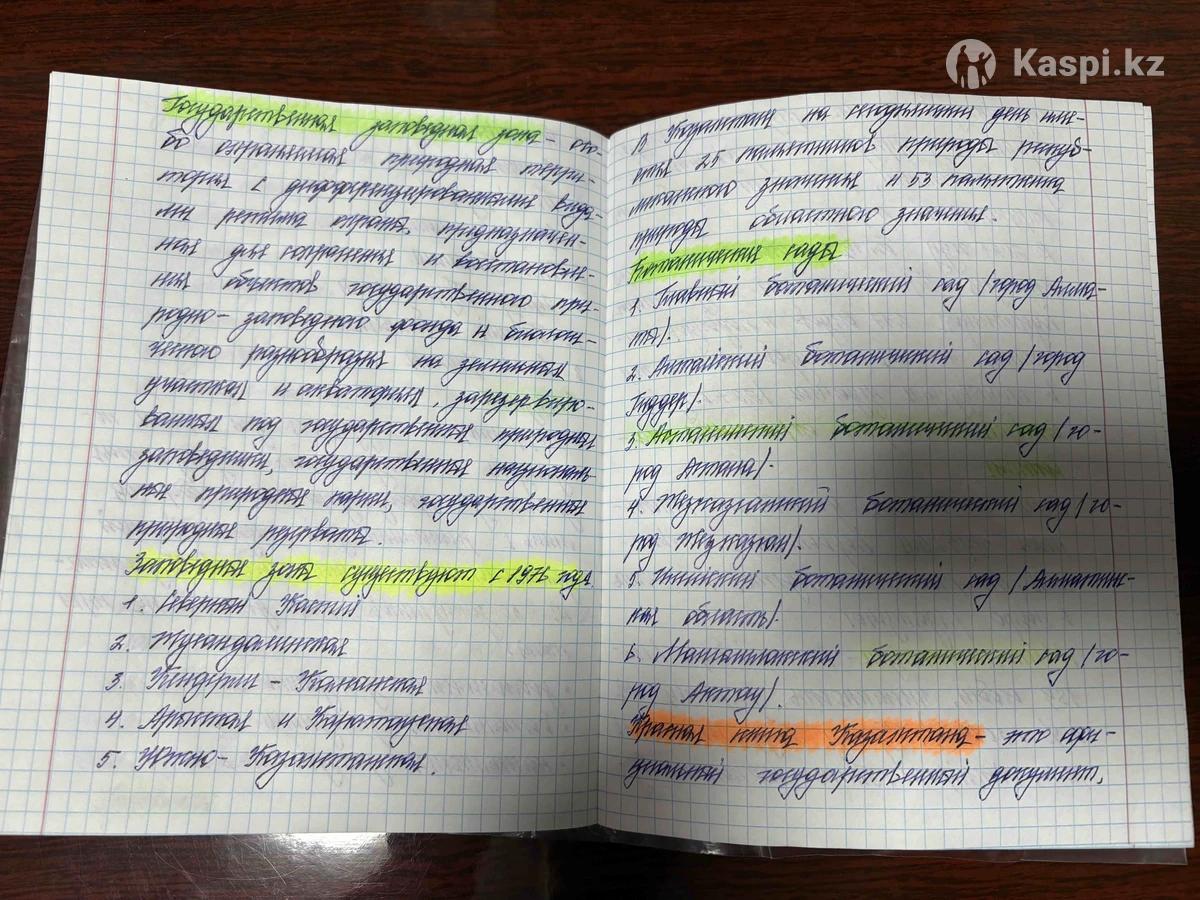 Kaspi.kz
Государственная заповедная зона - осо-
бо охраняемая природная терри-
тория с дифференцированными вида-
ми режима охраны, предназначен-
ная для сохранения и восстановле-
ния объектов государственного при-
родно-заповедного фонда и биологи-
ческого разнообразия на земельных
участках и акваториях, зарезервиро-
ванных под государственные природные
заповедники, государственные националь-
ные природные парки, государственные
природные резерваты.
Заповедные зоны существуют с 1976 года.
1. Северный Каспий
2. Жусандалинская
3. Кендерли - Каясанская
4. Арысская и Каратауская
5. Южно-Казахстанская.
В Казахстане на сегодняшний день име-
ется 25 памятников природы респуб-
ликанского значения и 53 памятника
природы областного значения.
Ботанические сады
1. Главный ботанический сад /город Алма-
ты/.
2. Алтайский ботанический сад /город
Риддер/.
3. Астанинский ботанический сад /го-
род Астана/.
4. Жезказганский ботанический сад /го-
род Жезказган/.
5. Илийский ботанический сад /Алматинс-
кая область/.
6. Мангышлакский ботанический сад /го-
род Актау/.
Красная книга Казахстана - это офи-
циальный государственный документ,